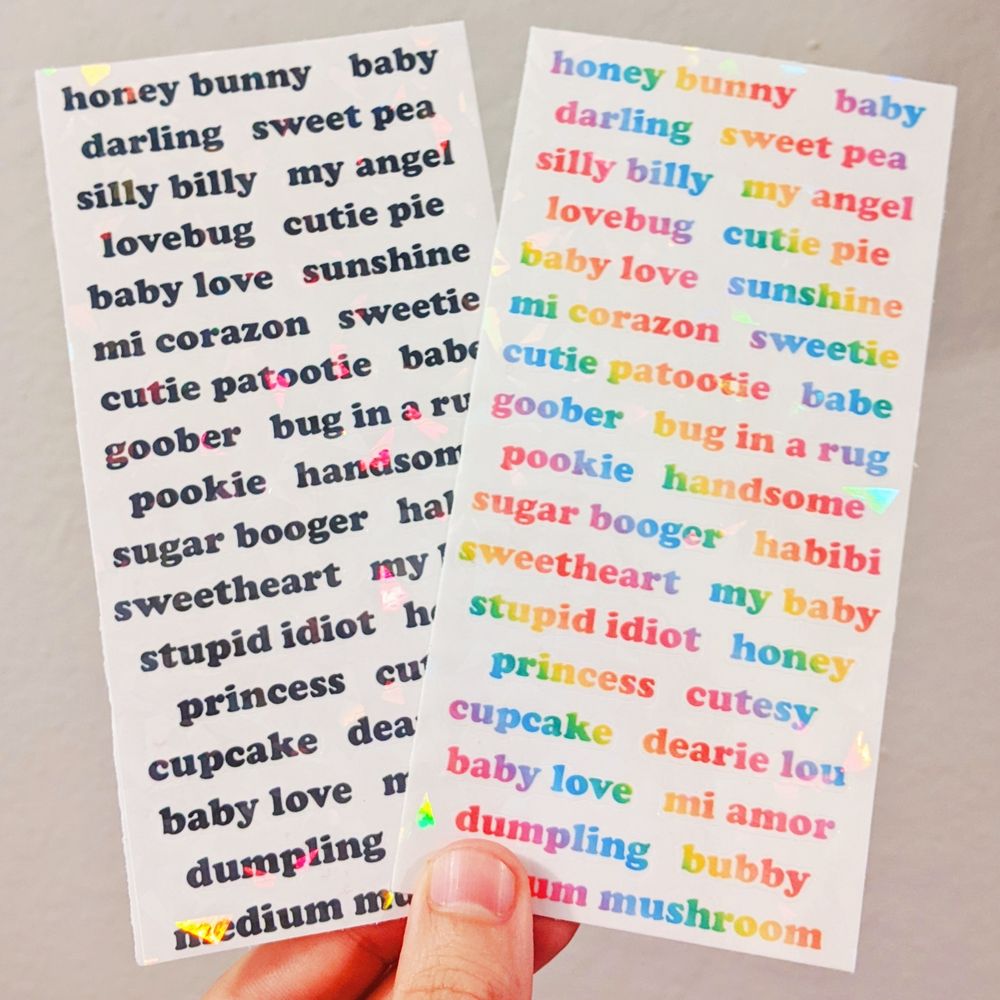 honey bunny baby
darling sweet pea
silly billy my angel
lovebug cutie pie
baby love sunshine
mi corazon sweetie
cutie patootie babe
goober bug in a ru
pookie handsom
sugar booger hal
sweetheart my
stupid idiot h
princess cu
cupcake dea
baby love m
dumpling
medium mu
honey bunny baby
darling sweet pea
silly billy my angel
lovebug cutie pie
baby love sunshine
mi corazon sweetie
cutie patootie babe
goober bug in a rug
pookie handsome
sugar booger habibi
sweetheart my baby
stupid idiot honey
princess cutesy
cupcake dearie lou
baby love mi amor
dumpling bubby
um mushroom